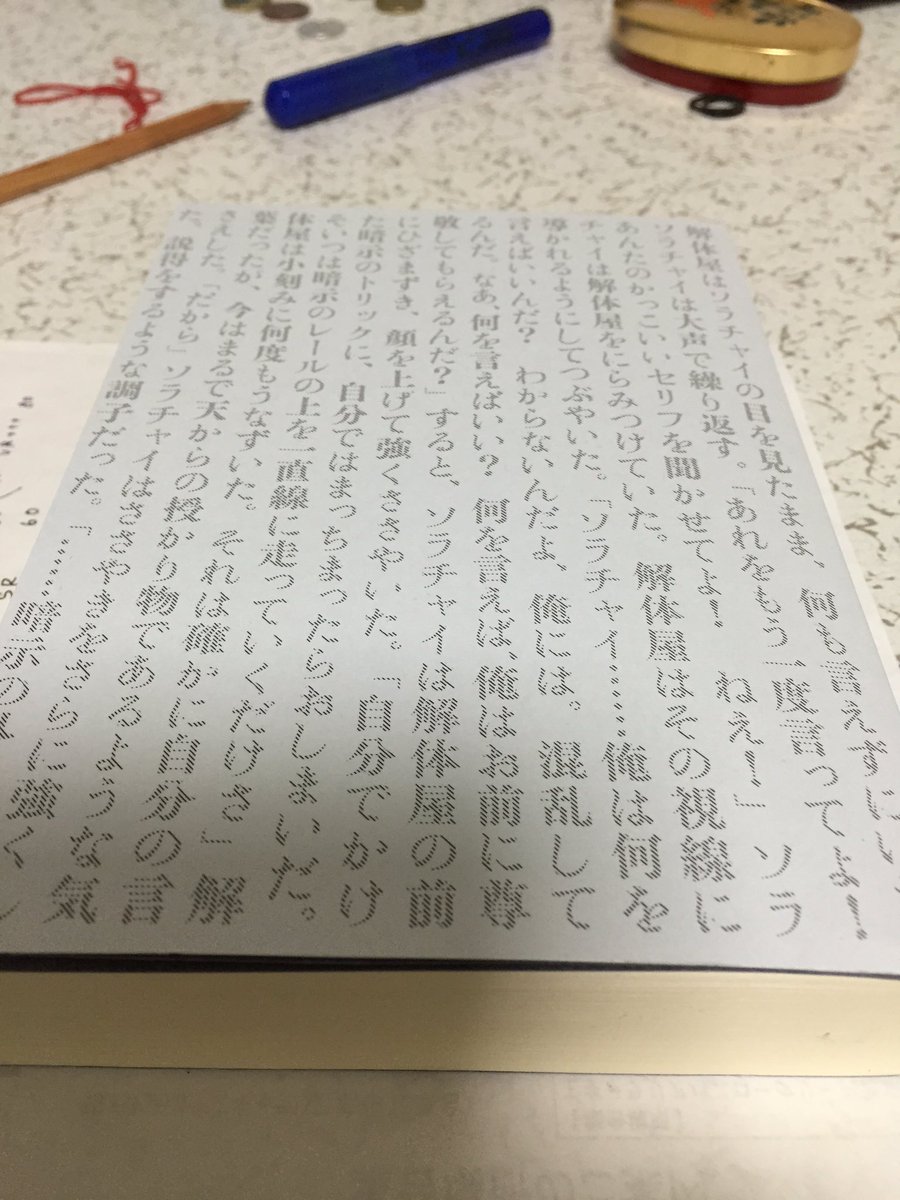 解体屋はソラチャイの目を見たまま、何も言えずにい
ソラチャイは大声で繰り返す。「あれをもう一度言ってよ！
あんたのかっこいいセリフを聞かせてよ！　ねえ！」ソラ
チャイは解体屋をにらみつけていた。解体屋はその視線に
導かれるようにしてつぶやいた。「ソラチャイ……俺は何を
言えばいいんだ？　わからないんだよ、俺には。混乱して
るんだ。なあ、何を言えばいい？　何を言えば、俺はお前に尊
敬してもらえるんだ？」すると、ソラチャイは解体屋の前
にひざまずき、顔を上げて強くささやいた。「自分でかけ
た暗示のトリックに、自分ではまっちまったらおしまいだ。
そいつは暗示のレールの上を一直線に走っていくだけさ」解
体屋は小刻みに何度もうなずいた。それは確かに自分の言
葉だったが、今はまるで天からの授かり物であるような気
さえした。「だから」ソラチャイはささやきをさらに強くし
た。説得をするような調子だった。「……暗示の
60
SR